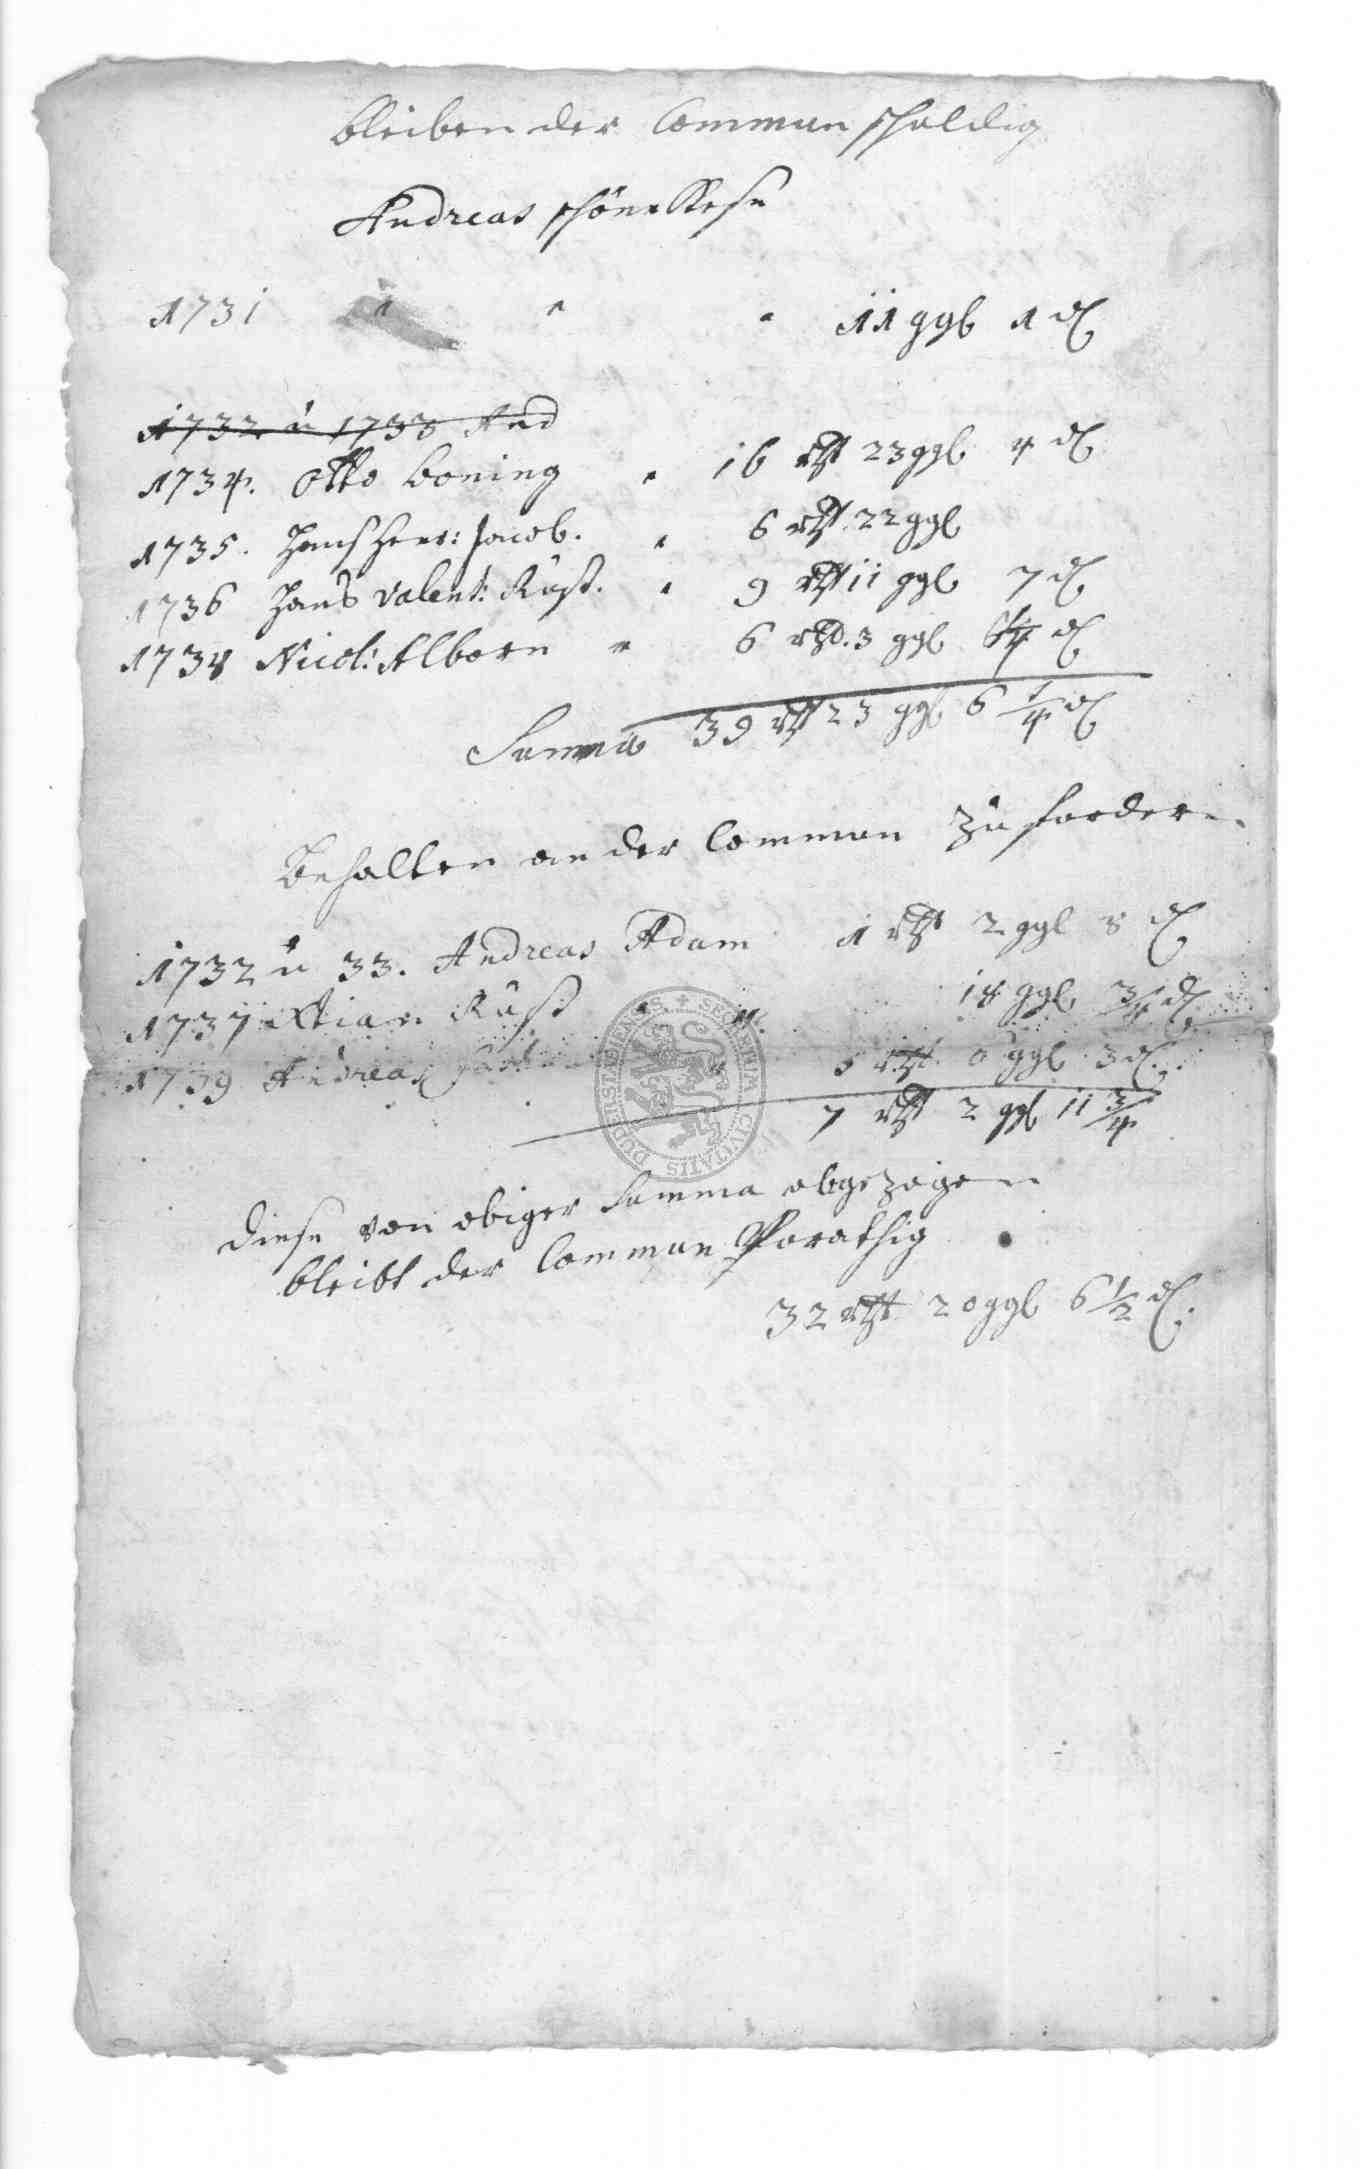 bleiben der Commun schuldig
Andreas schöneKese
1731 " " " 11 ggl 1 d
1732 u 1733 And
1734. Otto Boning " 16 rthl 23 ggl 4 d
1735. Hans Henr: Jacob. " 6 rthl 22 ggl
1736 Hans Valent: Rust. " 9 rthl 11 ggl 7 d
1738 Nicol: Alborn " 6 rthl. 3 ggl 6 1/4 d
Summa 39 rthl 23 ggl 6 1/4 d
Behalten an der Commun zu fordern
1732 u 33. Andreas Adam 1 rthl 2 ggl 8 d
1737 Rust " " 18 ggl 3/4 d
1739 Andreas " 5 rthl 6 ggl 3 d.
7 rthl 2 ggl 11 3/4
SECRETUM CIVITATIS DUDERSTADIENSIS
diese von obiger Summa abgezogen
bleibt der Commun Vorathig
32 rthl 20 ggl 6 1/2 d.